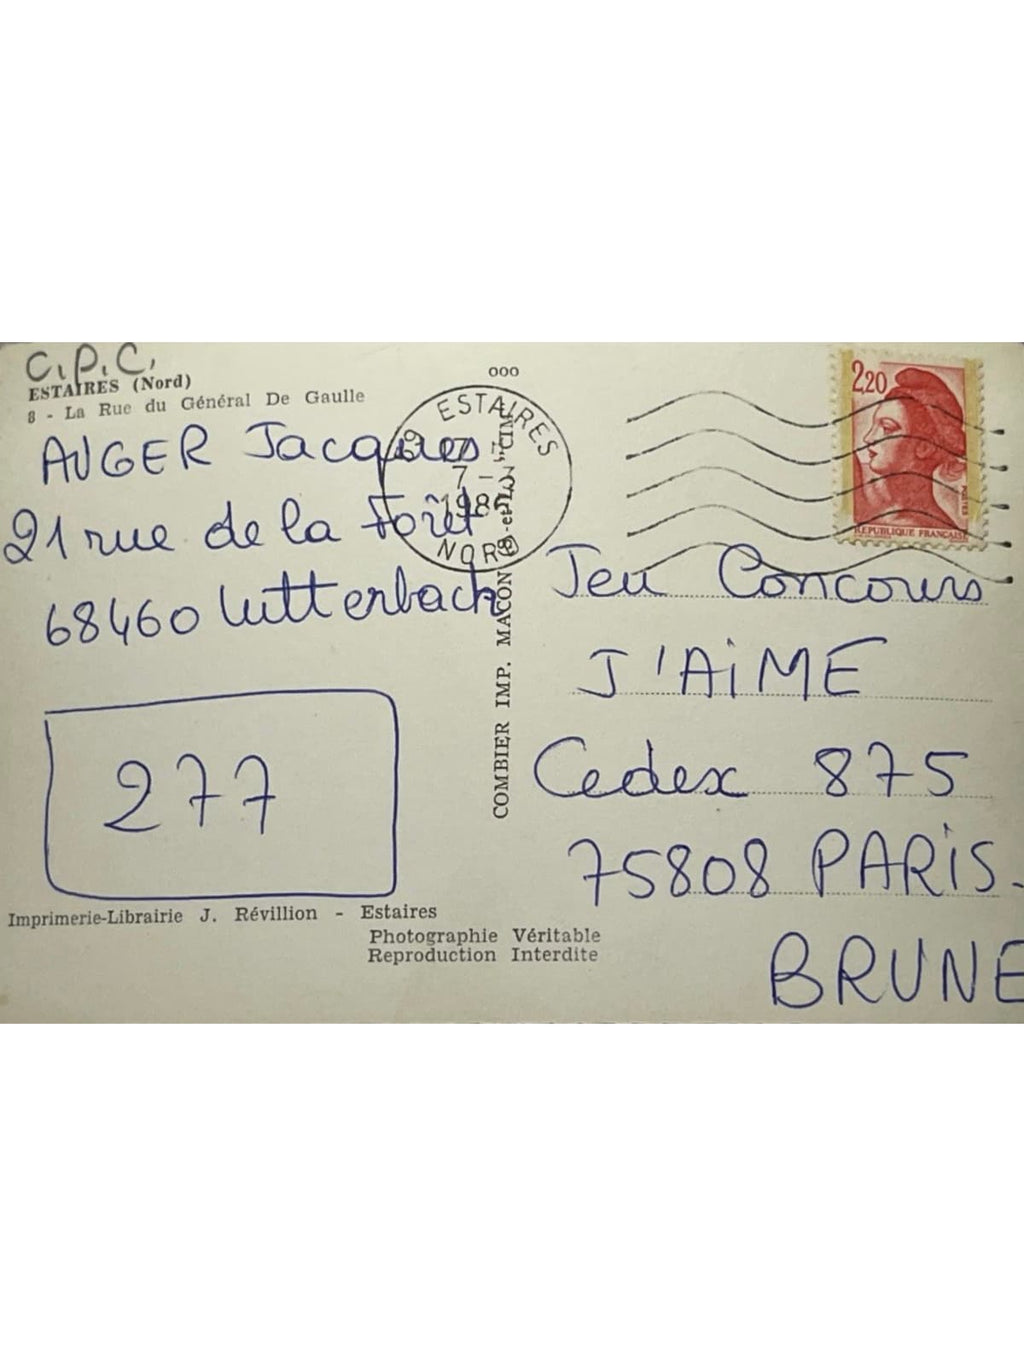 C.P.C.
ESTAIRES (Nord)
8 - La Rue du Général De Gaulle
AUGER Jacques
21 rue de la Forêt
68460 Lutterbach
277
Imprimerie-Librairie J. Révillion - Estaires
Photographie Véritable
Reproduction Interdite
ooo
ESTAIRES
7 -
1986
NORD
COMBIER IMP. MACON
2,20
POSTES
REPUBLIQUE FRANCAISE
Jeu Concours
J'AiME
Cedex 875
75808 PARiS-
BRUNE